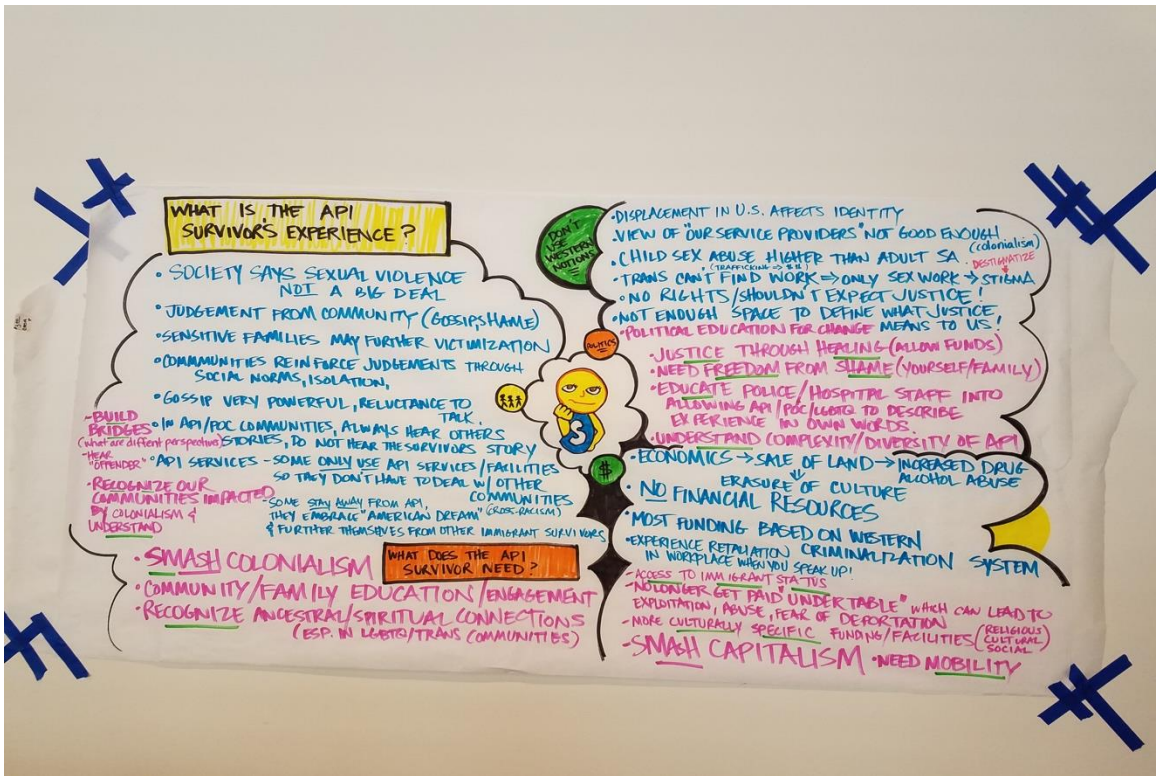 WHAT IS THE API
SURVIVOR'S EXPERIENCE?
• SOCIETY SAYS SEXUAL VIOLENCE
NOT A BIG DEAL
• JUDGEMENT FROM COMMUNITY (GOSSIP, SHAME)
• SENSITIVE FAMILIES MAY FURTHER VICTIMIZATION
• COMMMUNITIES REINFORCE JUDGEMENTS THROUGH
SOCIAL NORMS, ISOLATION,
• GOSSIP VERY POWERFUL, RELUCTANCE TO
TALK.
• IN API/POC COMMUNITIES, ALWAYS HEAR OTHERS
STORIES, DO NOT HEAR THE SURVIVORS STORY
• API SERVICES - SOME ONLY USE API SERVICES/FACILITIES
SO THEY DON'T HAVE TO DEAL W/ OTHER
COMMUNITIES
(CROSS-RACISM)
- SOME STAY AWAY FROM API,
THEY EMBRACE "AMERICAN DREAM"
& FURTHER THEMSELVES FROM OTHER IMMIGRANT SURVIVORS
- BUILD
BRIDGES
(what are different perspectives)
- HEAR
"OFFENDER"
• RECOGNIZE OUR
COMMUNITIES IMPACTED
BY COLONIALISM &
UNDERSTAND
WHAT DOES THE API
SURVIVOR NEED?
• SMASH COLONIALISM
• COMMUNITY/FAMILY EDUCATION/ENGAGEMENT
• RECOGNIZE ANCESTRAL/SPIRITUAL CONNECTIONS
(ESP. IN LGBTQ/TRANS COMMUNITIES)
DON'T
USE
WESTERN
NOTIONS
POLITICS
S
$
• DISPLACEMENT IN U.S. AFFECTS IDENTITY
• VIEW OF "OUR SERVICE PROVIDERS" NOT GOOD ENOUGH
(colonialism)
• CHILD SEX ABUSE HIGHER THAN ADULT SA
(TRAFFICKING → $$)
DESTIGMATIZE
• TRANS CAN'T FIND WORK ⇒ ONLY SEX WORK → STIGMA
• NO RIGHTS/SHOULDN'T EXPECT JUSTICE!
• NOT ENOUGH SPACE TO DEFINE WHAT JUSTICE
MEANS TO US!
• POLITICAL EDUCATION FOR CHANGE
• JUSTICE THROUGH HEALING (ALLOW FUNDS)
• NEED FREEDOM FROM SHAME (YOURSELF/FAMILY)
• EDUCATE POLICE/HOSPITAL STAFF INTO
ALLOWING API/POC/LGBTQ TO DESCRIBE
EXPERIENCE IN OWN WORDS.
• UNDERSTAND COMPLEXITY/DIVERSITY OF API
• ECONOMICS → SALE OF LAND → INCREASED DRUG
ALCOHOL ABUSE
ERASURE OF CULTURE
• NO FINANCIAL RESOURCES
• MOST FUNDING BASED ON WESTERN
CRIMINALIZATION SYSTEM
• EXPERIENCE RETALIATION
IN WORKPLACE WHEN YOU SPEAK UP!
- ACCESS TO IMMIGRANT STATUS
- NO LONGER GET PAID "UNDER TABLE" which CAN LEAD TO
EXPLOITATION, ABUSE, FEAR OF DEPORTATION
- MORE CULTURALLY SPECIFIC FUNDING/FACILITIES (RELIGIOUS
CULTURAL
SOCIAL
- SMASH CAPITALISM • NEED MOBILITY